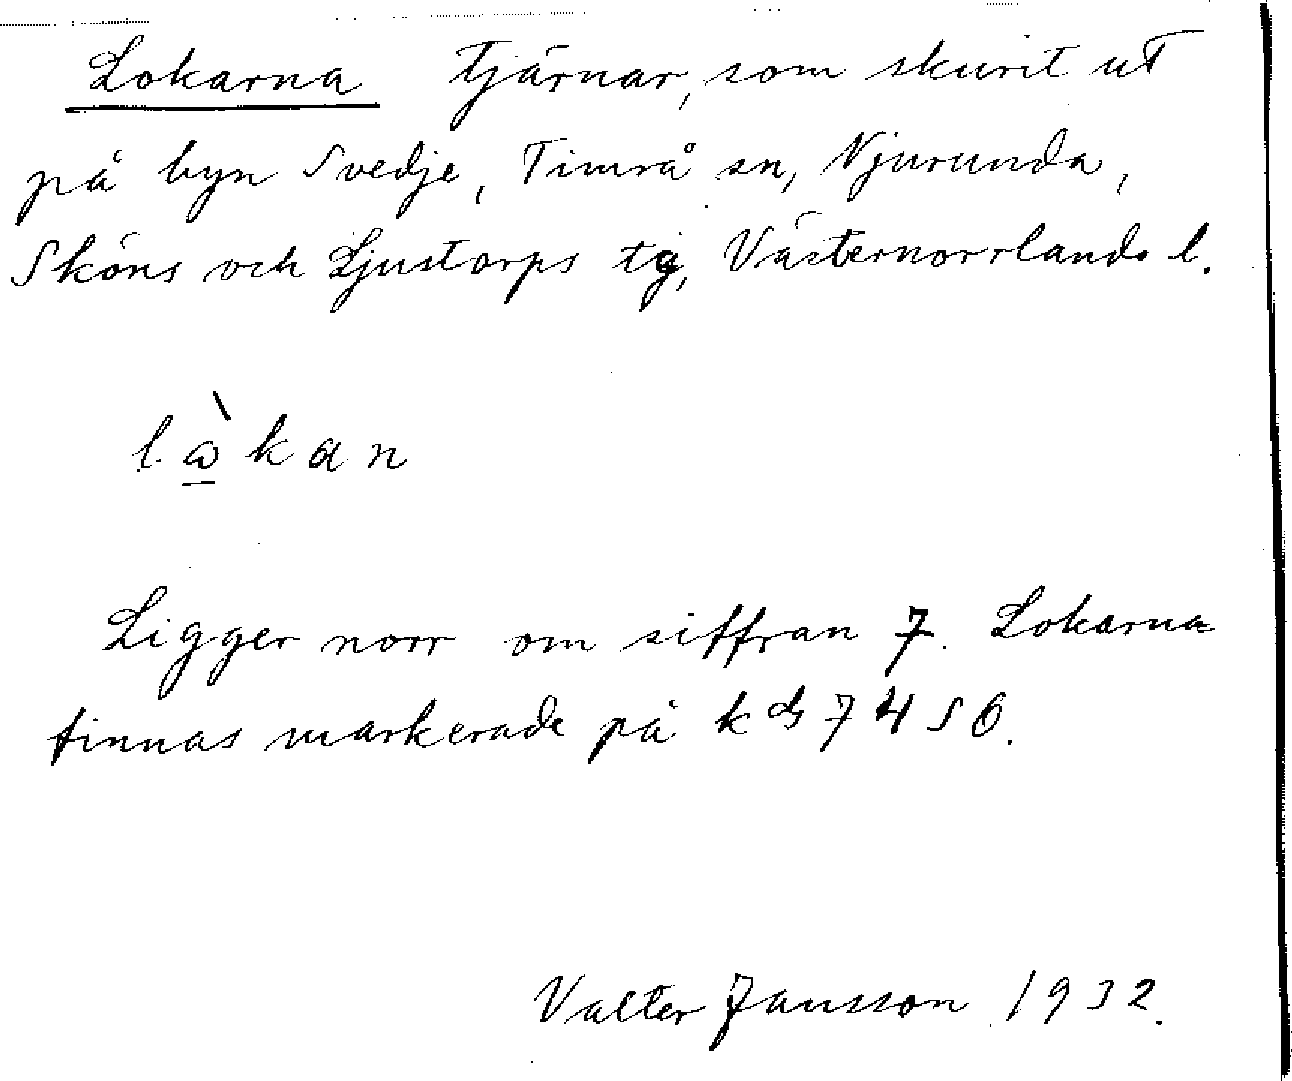 Lokarna tjärnar, som skurit ut
på byn Svedje, Timrå sn, Njurunda,
Sköns och Ljustorps tg, Västernorrlands l.
lὼ̲kan
Ligger norr om siffran 7. Lokarna
finnas markerade på kds 7456.
Valter Jansson 1932.